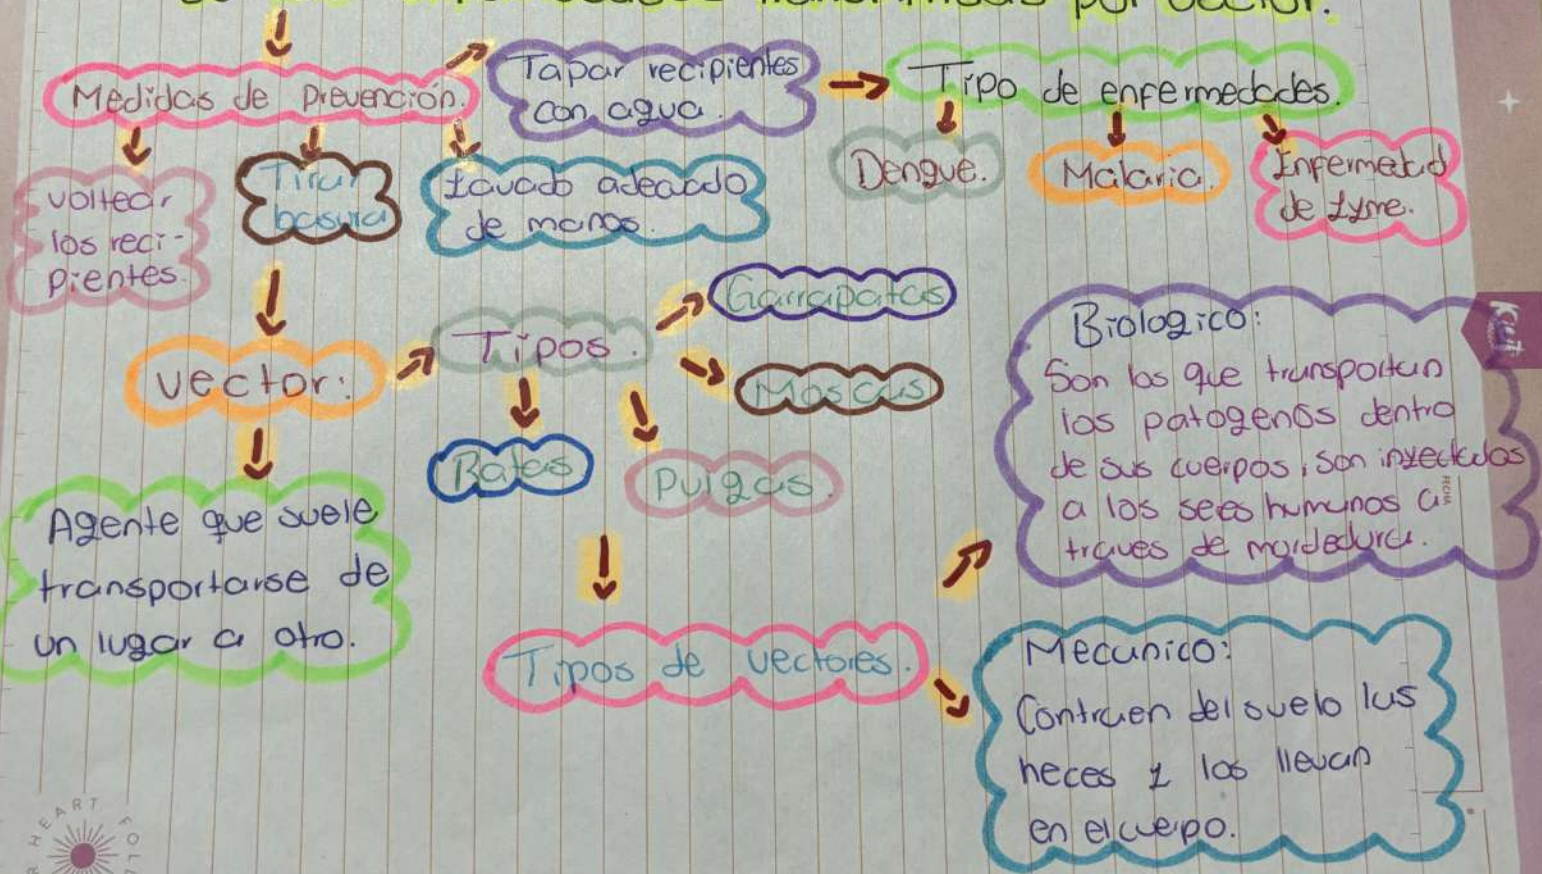 por vector.
Medidas de prevención.
Tapar recipientes
con agua.
Tipo de enfermedades.
voltear
los reci-
pientes.
Tirar
basura
Lavado adecuado
de manos.
Dengue.
Malaria.
Enfermedad
de Lyme.
vector:
Tipos.
Garrapatas
Moscas
Ratas
Pulgas.
Agente que suele
transportarse de
un lugar a otro.
Tipos de vectores.
Biologico:
Son los que transportan
los patogenos dentro
de sus cuerpos, son inyectados
a los sees humanos a
traves de mordedura.
Mecanico:
Contraen del suelo las
heces y los llevan
en el cuerpo.
HEART